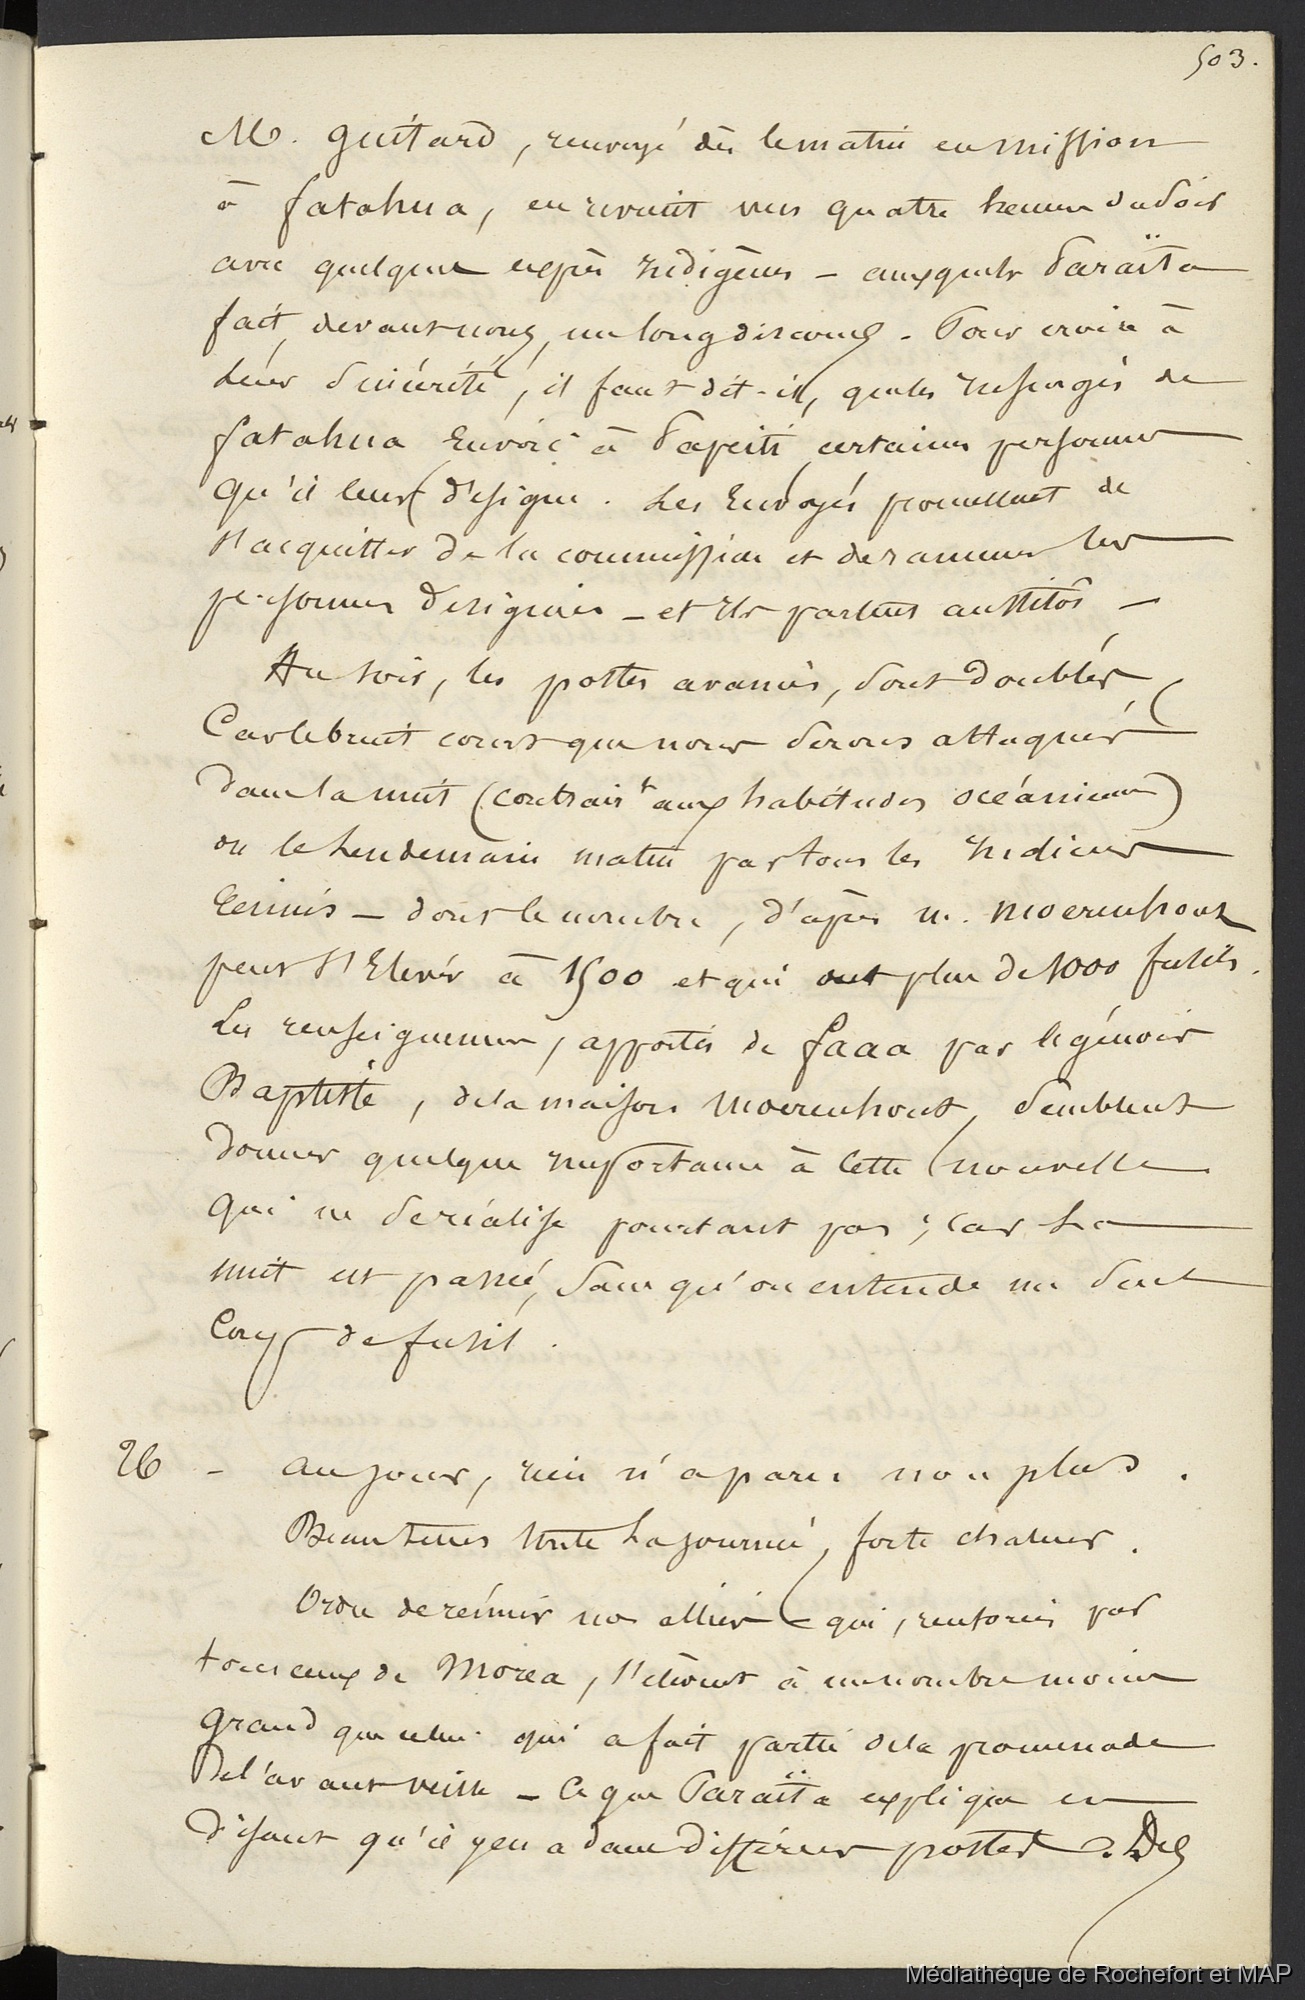 503.
M. Guitard, renvoyé dès le matin en mission
à fatahua, en revient vers quatre heures du soir
avec quelques exprès indigènes – auxquels Paraïta
fait, devant nous, un long discours. Pour croire à
leur sincérité, il faut dit-il, que les insurgés de
fatahua envoie à Papeïti certaines personnes
qu'il leur désigne. Les Envoyés promettent de
s'acquitter de la commission et de ramener les
personnes désignées – et ils partent aussitôt –
Au soir, les postes avancés, sont doublés
Car le bruit court que nous serons attaqués
dans la nuit (contrair.t aux habitudes océanienes)
ou le lendemain matin par tous les Indiens
Réunis – dont le nombre, d'après M. Moerenhout
peut s'Elever à 1500 et qui ont plus de 1000 fusils.
Les renseignemens, apportés de faaa par le génois
Baptiste, de la maison Moerenhout, semblent
donner quelque importance à cette nouvelle
qui ne se réalise pourtant pas ; car La
nuit est passée, sans qu'on entende un seul
Coup de fusil.
26 – au jour, rien n'a paru non plus.
Beau tems toute La journée, forte chaleur.
Ordre de réunir nos alliés qui, renforcés par
tous ceux de Morea, s'élèvent à un nombre moins
grand que celui qui a fait partie de la promenade
de l'avant veille – Ce que Paraïta explique en
disant qu'il y en a dans différens postes. Des
Médiathèque de Rochefort et MAP